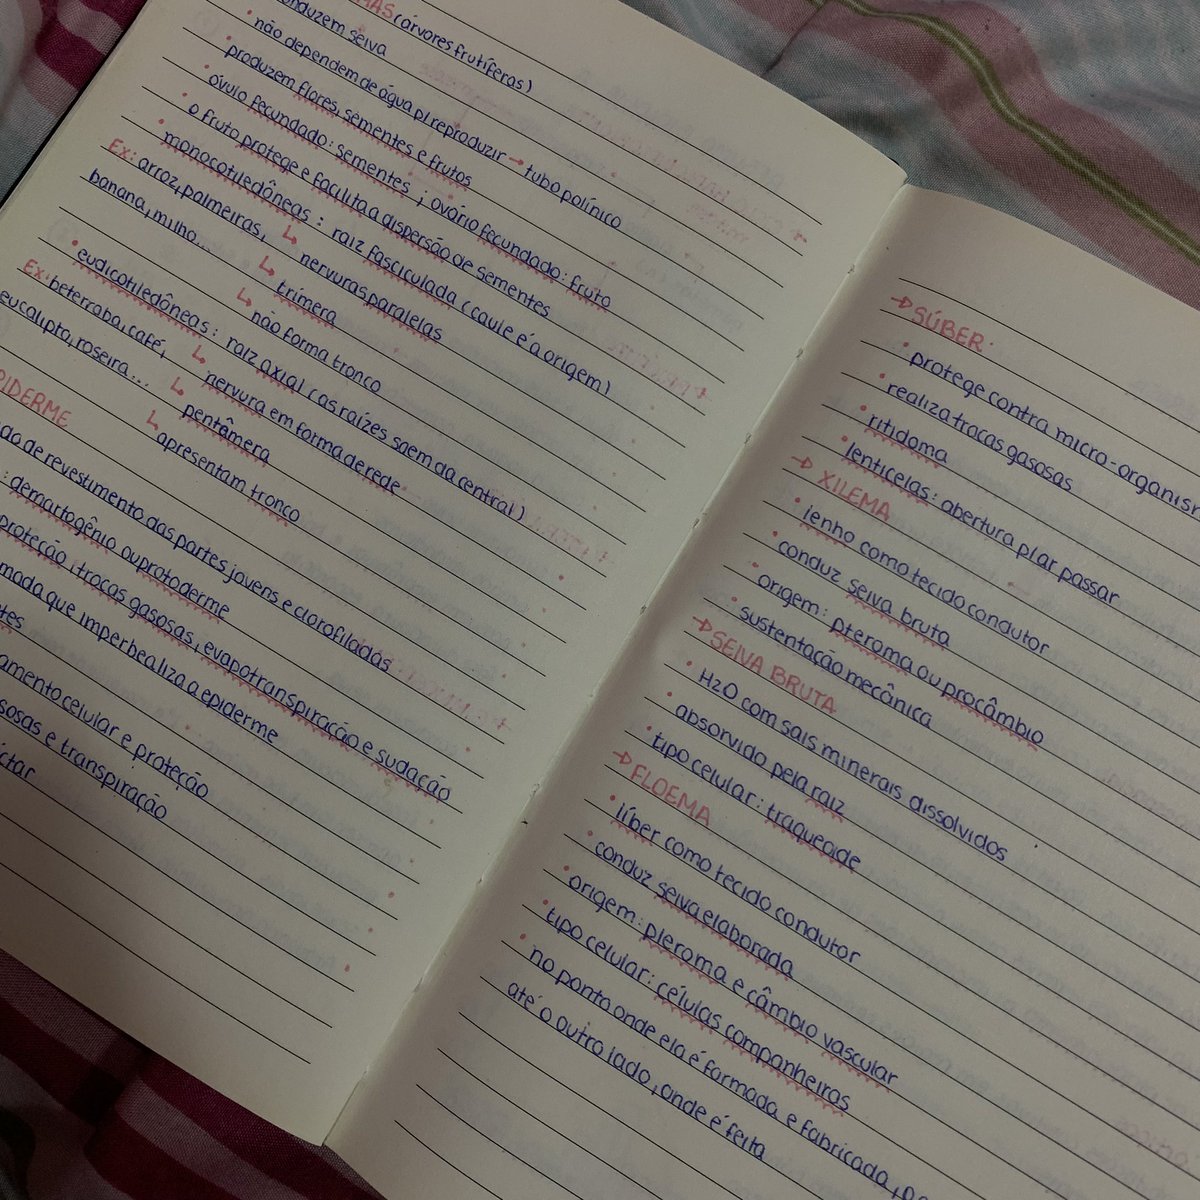 MAS (árvores frutíferas)
conduzem seiva
• não dependem de água p/ reproduzir → tubo polínico
• produzem flores, sementes e frutos
• óvulo fecundado: sementes ; ovário fecundado: fruto
• o fruto protege e facilita a dispersão de sementes
• monocotiledôneas : raiz fasciculada (caule é a origem)
Ex: arroz, palmeiras, ↳ nervuras paralelas
banana, milho... ↳ trímera
↳ não forma tronco
• eudicotiledôneas : raiz axial (as raízes saem da central)
Ex: beterraba, café, ↳ nervura em forma de rede
eucalipto, roseira... ↳ pentâmera
↳ apresentam tronco
PIDERME
de revestimento das partes jovens e clorofiladas
: demartogênio ou protoderme
proteção, trocas gasosas, evapotranspiração e sudação
mada que imperbealiza a epiderme
tes
amento celular e proteção
sosas e transpiração
ctar
→ SÚBER:
• protege contra micro-organism
• realiza trocas gasosas
• ritidoma
• lenticelas: abertura p/ ar passar
→ XILEMA
• lenho como tecido condutor
• conduz seiva bruta
• origem: pleroma ou procâmbio
• sustentação mecânica
→ SEIVA BRUTA
• H2O com sais minerais dissolvidos
• absorvido pela raiz
• tipo celular: traqueide
→ FLOEMA
• líber como tecido condutor
• conduz seiva elaborada
• origem: pleroma e câmbio vascular
• tipo celular: células companheiras
• no ponto onde ela é formada e fabricada,
até o outro lado, onde é feita